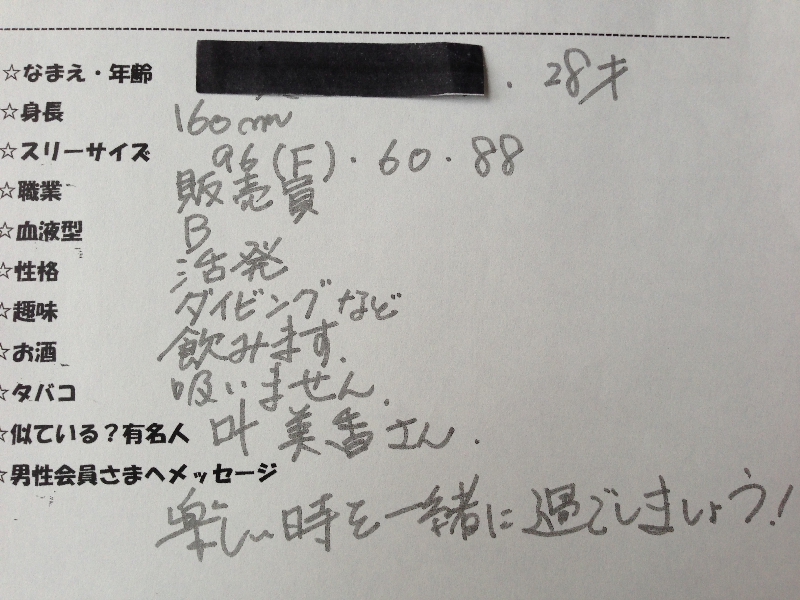 ☆なまえ・年齢 . 28才
☆身長 160cm
☆スリーサイズ 96(F)・60・88
☆職業 販売員
☆血液型 B
☆性格 活発
☆趣味 ダイビングなど
☆お酒 飲みます.
☆タバコ 吸いません.
☆似ている?有名人 叶美香さん.
☆男性会員さまへメッセージ
楽しい時を一緒に過ごしましょう!